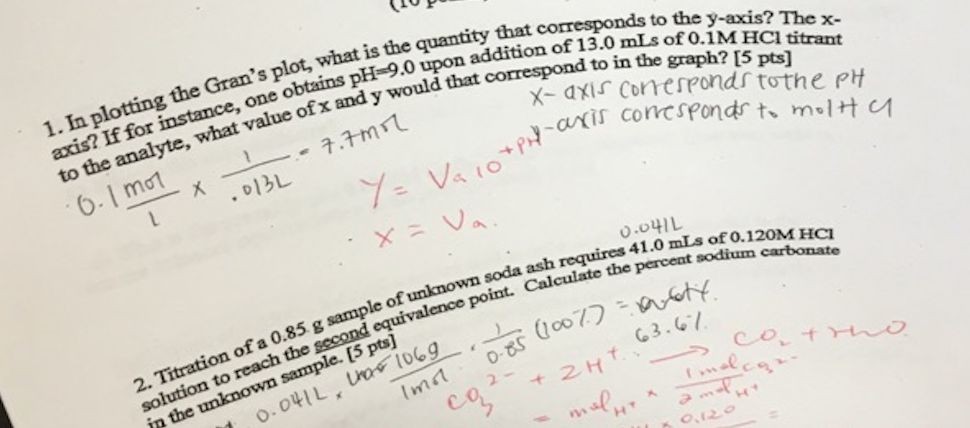 (10 p
1. In plotting the Gran's plot, what is the quantity that corresponds to the y-axis? The x-
axis? If for instance, one obtains pH=9.0 upon addition of 13.0 mLs of 0.1M HCl titrant
to the analyte, what value of x and y would that correspond to in the graph? [5 pts]
x-axis corresponds to the pH
y-axis corresponds to mol HCl
0.1 mol/1 x 1/.013L = 7.7 mol
Y = Va 10^+pH
x = Va.
0.041L
2. Titration of a 0.85 g sample of unknown soda ash requires 41.0 mLs of 0.120M HCl
solution to reach the second equivalence point. Calculate the percent sodium carbonate
in the unknown sample. [5 pts]
0.041L x 106g/1mol · 1/0.85 (100%) =
63.6%
CO3^2- + 2H+ → CO2 + H2O
= mol H+ x 1 mol CO3^2-/2 mol H+
x 0.120 =